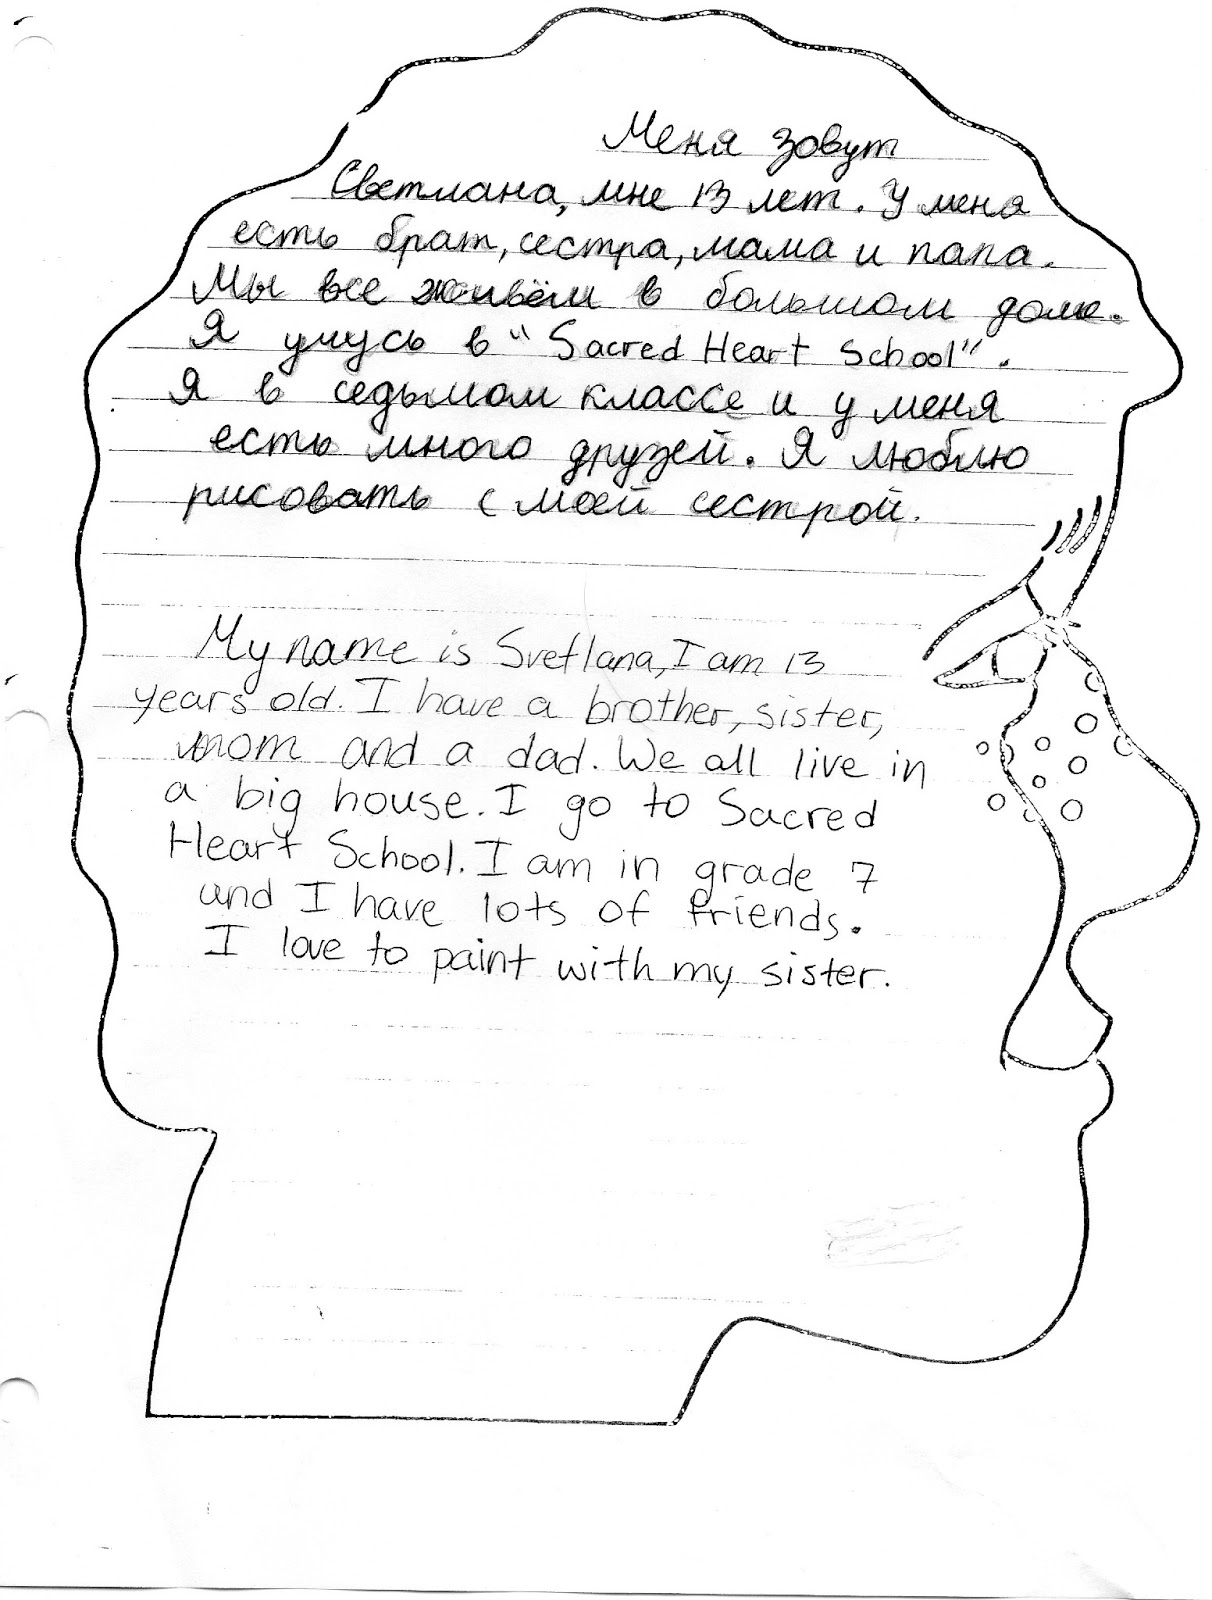 Меня зовут
Светлана, мне 13 лет. У меня
есть брат, сестра, мама и папа.
Мы все живём в большом доме.
Я учусь в "Sacred Heart School".
Я в седьмом классе и у меня
есть много друзей. Я люблю
рисовать с моей сестрой.
My name is Svetlana, I am 13
years old. I have a brother, sister,
mom and a dad. We all live in
a big house. I go to Sacred
Heart School. I am in grade 7
and I have lots of friends.
I love to paint with my sister.